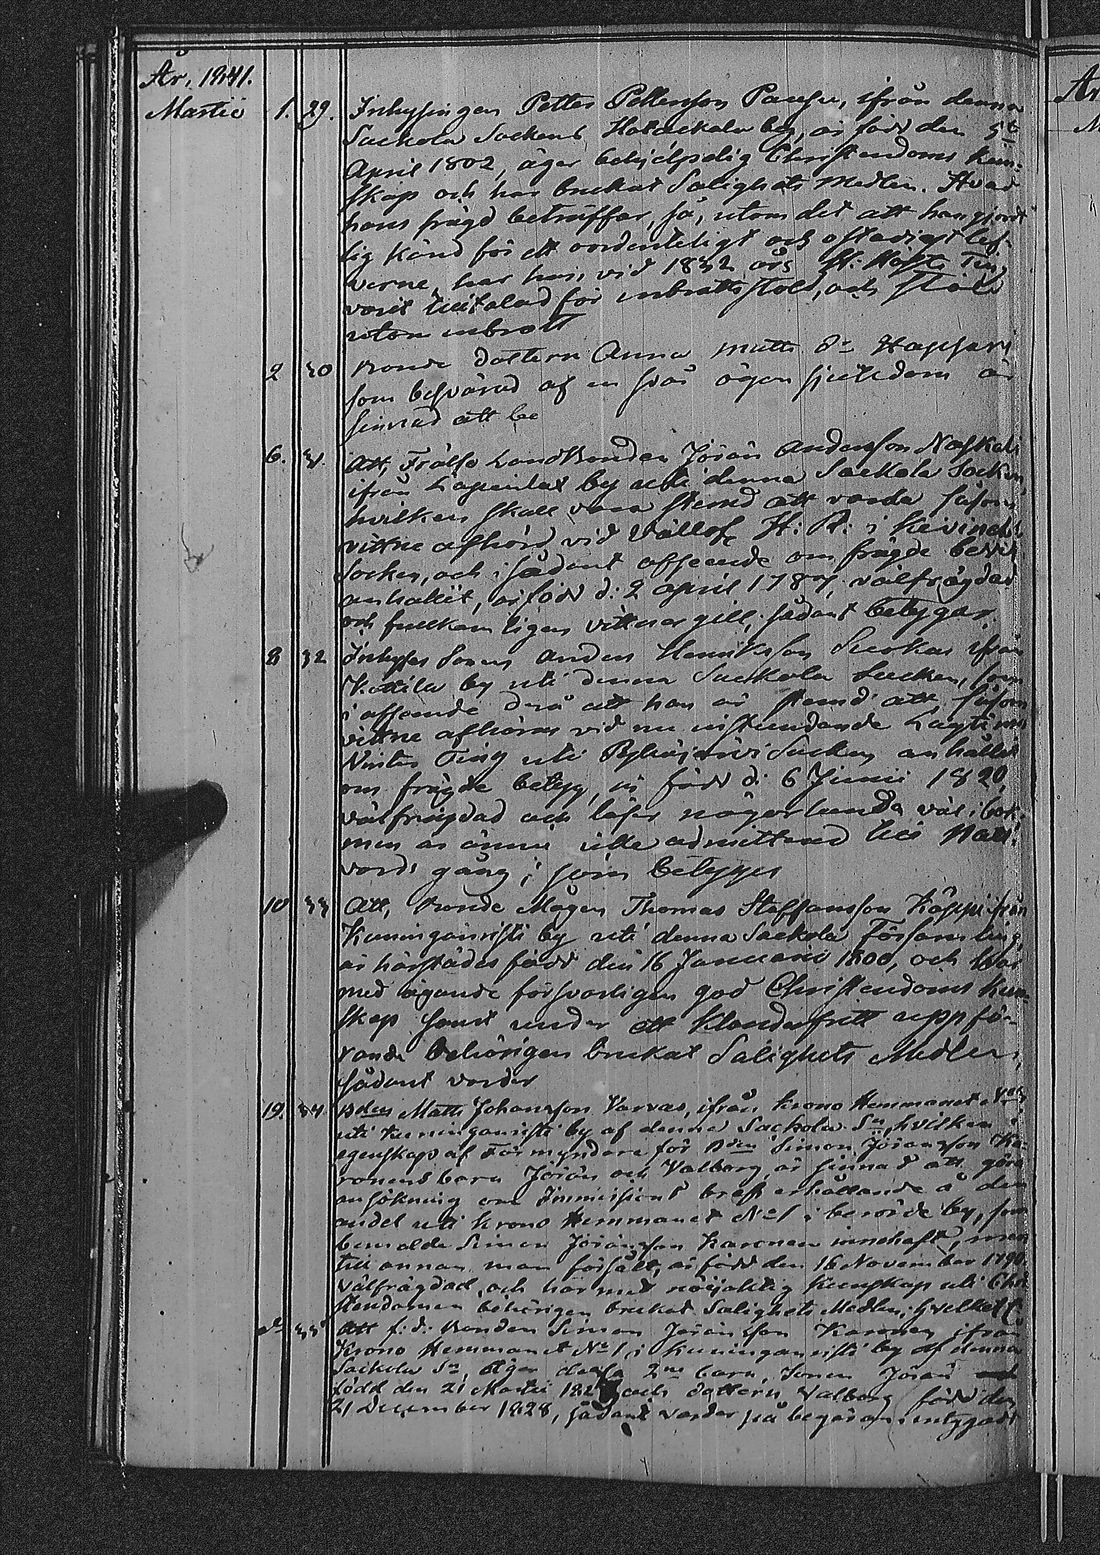 År, 1841.
Martii 1. 29. Inhysingen Petter Pettersson Paasu, ifrån denna
Sackola Sockens Hatackala by, är född den 5te
April 1802, äger behjelpelig Christendoms kun-
skap och har brukat Salighets Medlen. Hvad
hans frägd beträffar, så, utom det att han gjordt
sig känd för ett oordenteligt och ostadigt lef-
verne, har han, vid 1832 års H. Höst Ting
varit tilltalad för inbrotts stöld, och stöld
utom inbrott
2 30 Bonde dottern Anna Matts dr
som besvärad af en svår ögon sjukdom är
sinnad att be
6. 31. Att, Frälse Landbonden Jöran Andersson
ifrån Lapinlax by uti denna Sackola Socken,
hvilken skall vara stemd att varda såsom
vittne afhörd vid H: R: i
Socken, och i sådant afseende om frägde bevis
anhållit, är född d: 2 April 1787, välfrägdad
och fullkomligen vittnes gill, sådant betygas.
8 32 Inhyses Sonen Anders Henriksson ifrån
by uti denna Sackola Socken, som
i afseende derå att han är stemd att såsom
vittne afhöras vid nu instundande Lagtima
Vinter Ting uti Pyhäjärvi Socken anhållit
om frägde betyg, är född d: 6 Junii 1820,
välfrägdad och läser någorlunda väl i bok
men är ännu icke admitterad till Natt-
vards gång; som betygas
10 33 Att, Bonde Mågen Thomas Staffansson Käppi ifrån
Kuninganristi by uti denna Sackola Församling,
är härstädes född den 16 Januarii 1800, och har
med ägande försvarligen god Christendoms kun-
skap samt under ett klanderfritt uppfö-
rande behörigen brukat Salighets Medlen,
sådant varder
19. 34. Bden Matts Johansson Varvas, ifrån Krono Hemmanet
uti Kuninganristi by af denna Sackola Sn, hvilken i
egenskap af Förmyndare för Bden Simon Jöransson Ka-
ronens barn Jöran och Valborg är sinnad att göra
ansökning om Immissions bref erhållande å den
andel uti Krono Hemmanet No 1 i berörde by, som
bemälde Simon Jöransson Karonen innehaft, men
till annan man försålt, är född den 16 November 1790
välfrägdad, och har med nöjaktig kunskap uti Chri-
stendomen behörigen brukat Salighets Medlen; hvilket
do 35 Att f: d: Bonden Simon Jöransson Karonen ifrån
Krono Hemmanet No 1, i Kuninganristi by af denna
Sackola Sn äger 2ne barn, Sonen Jöran
född den 21 Martii 182 och dottern Valborg född den
21 December 1828, sådant varder på begäran intygadt